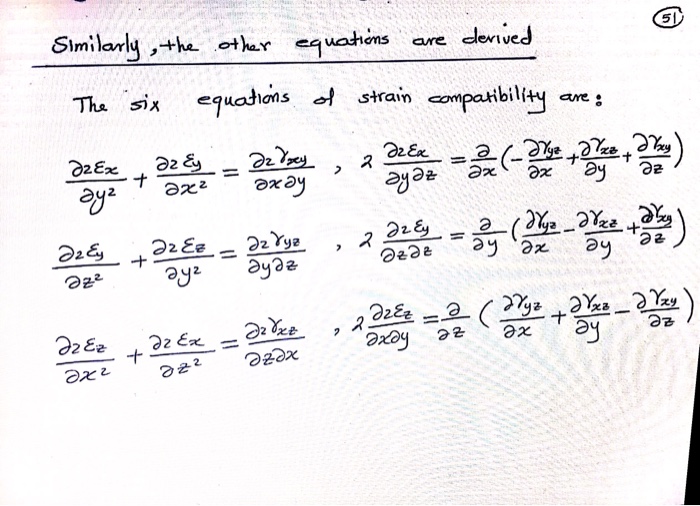 51
Similarly, the other equations are derived
The six equations of strain compatibility are:
∂2εx/∂y² + ∂2εy/∂x² = ∂2γxy/∂x∂y , 2 ∂2εx/∂y∂z = ∂/∂x (-∂γyz/∂x + ∂γxz/∂y + ∂γxy/∂z)
∂2εy/∂z² + ∂2εz/∂y² = ∂2γyz/∂y∂z , 2 ∂2εy/∂z∂z = ∂/∂y (∂γyz/∂x - ∂γxz/∂y + ∂γxy/∂z)
∂2εz/∂x² + ∂2εx/∂z² = ∂2γxz/∂z∂x , 2 ∂2εz/∂x∂y = ∂/∂z (∂γyz/∂x + ∂γxz/∂y - ∂γxy/∂z)